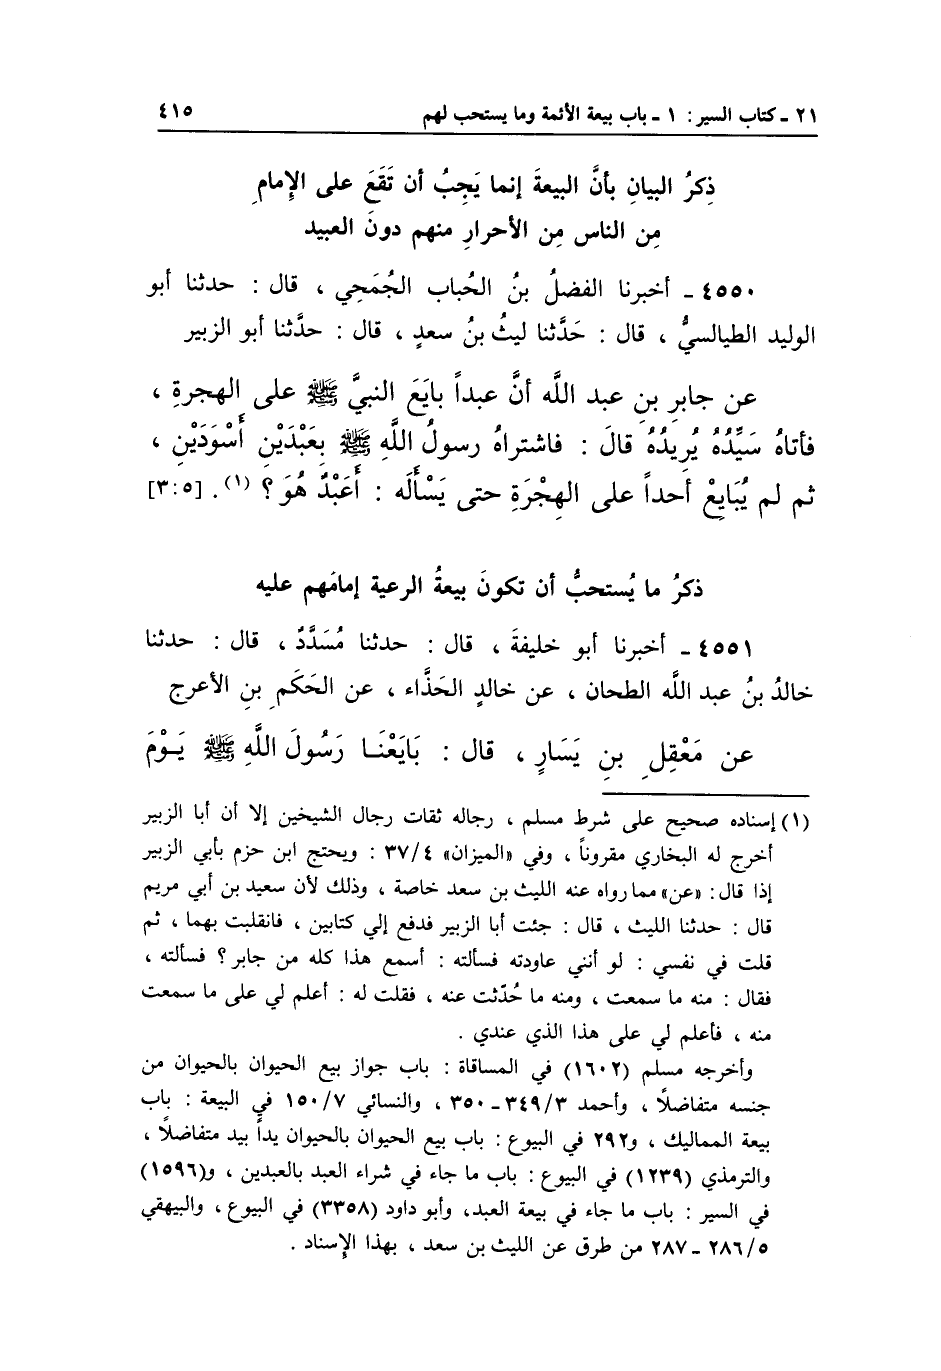 ٢١ ـ كتاب السير : ١ ـ باب بيعة الأئمة وما يستحب لهم ٤١٥
ذِكرُ البيانِ بأنَّ البيعةَ إنما يَجِبُ أن تَقَعَ على الإِمامِ
مِن الناس مِن الأحرارِ منهم دونَ العبيد
٤٥٥٠ ـ أخبرنا الفضلُ بنُ الحُباب الجُمَحِي ، قال : حدثنا أبو
الوليد الطيالسيُّ ، قال : حَدَّثنا ليثُ بنُ سعدٍ ، قال : حدَّثنا أبو الزبير
عن جابرِ بنِ عبد اللَّه أنَّ عبداً بايَعَ النبيَّ ﷺ على الهجرةِ ،
فأتاهُ سَيِّدُهُ يُرِيدُهُ قالَ : فاشتراهُ رسولُ اللَّهِ ﷺ بِعَبْدَيْنِ أَسْوَدَيْنِ ،
ثم لم يُبَايِعْ أحداً على الهِجْرَةِ حتى يَسْأَلَه : أَعَبْدٌ هُوَ ؟ (١) . [٣:٥]
ذكرُ ما يُستحبُّ أن تكونَ بيعةُ الرعية إمامَهم عليه
٤٥٥١ ـ أخبرنا أبو خليفةَ ، قال : حدثنا مُسَدَّدٌ ، قال : حدثنا
خالدُ بنُ عبد اللَّه الطحان ، عن خالدٍ الحَذَّاء ، عن الحَكَمِ بنِ الأعرج
عن مَعْقِلِ بنِ يَسَارٍ ، قال : بَايَعْنَا رَسُولَ اللَّهِ ﷺ يَوْمَ
(١) إسناده صحيح على شرط مسلم ، رجاله ثقات رجال الشيخين إلا أن أبا الزبير
أخرج له البخاري مقروناً ، وفي «الميزان» ٣٧/٤ : ويحتج ابن حزم بأبي الزبير
إذا قال : «عن» مما رواه عنه الليث بن سعد خاصة ، وذلك لأن سعيد بن أبي مريم
قال : حدثنا الليث ، قال : جئت أبا الزبير فدفع إلي كتابين ، فانقلبت بهما ، ثم
قلت في نفسي : لو أنني عاودته فسألته : أسمع هذا كله من جابر ؟ فسألته ،
فقال : منه ما سمعت ، ومنه ما حُدّثت عنه ، فقلت له : أعلم لي على ما سمعت
منه ، فأعلم لي على هذا الذي عندي .
وأخرجه مسلم (١٦٠٢) في المساقاة : باب جواز بيع الحيوان بالحيوان من
جنسه متفاضلًا ، وأحمد ٣٤٩/٣ ـ ٣٥٠ ، والنسائي ١٥٠/٧ في البيعة : باب
بيعة المماليك ، و٢٩٢ في البيوع : باب بيع الحيوان بالحيوان يداً بيد متفاضلًا ،
والترمذي (١٢٣٩) في البيوع : باب ما جاء في شراء العبد بالعبدين ، و(١٥٩٦)
في السير : باب ما جاء في بيعة العبد، وأبو داود (٣٣٥٨) في البيوع ، والبيهقي
٢٨٦/٥ ـ ٢٨٧ من طرق عن الليث بن سعد ، بهذا الإِسناد .